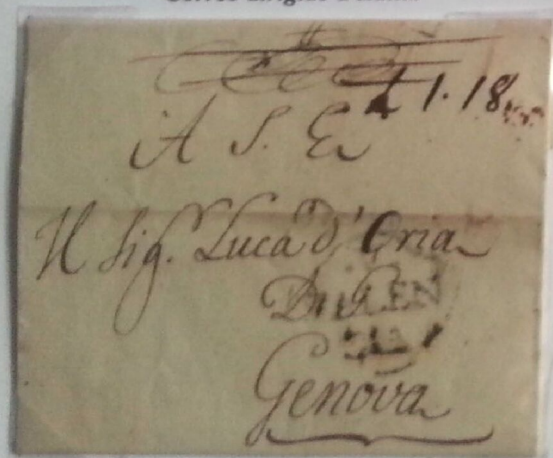 1.18
A S. E.
Il Sig.r Luca d'Oria
Genova